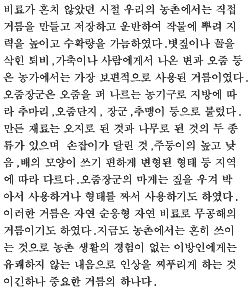 비료가 흔치 않았던 시절 우리의 농촌에서는 직접
거름을 만들고 저장하고 운반하여 작물에 뿌려 지
력을 높이고 수확량을 가늠하였다.볏짚이나 풀을
삭힌 퇴비,가축이나 사람에게서 나온 변과 오줌 등
은 농가에서는 가장 보편적으로 사용된 거름이였다.
오줌장군은 오줌을 퍼 나르는 농기구로 지방에 따
라 추마리,오줌단지, 장군 ,추맹이 등으로 불렀다.
만든 재료는 오지로 된 것과 나무로 된 것의 두 종
류가 있으며 손잡이가 달린 것 ,주둥이의 높고 낮
음,배의 모양이 쓰기 편하게 변형된 형태 등 지역
에 따라 다르다.오줌장군의 마개는 짚을 우겨 박
아서 사용하거나 형태를 짜서 사용하기도 하였다.
이러한 거름은 자연 순응형 자연 비료로 무공해의
거름이기도 하였다.지금도 농촌에서는 흔히 쓰이
는 것으로 농촌 생활의 경험이 없는 이방인에게는
유쾌하지 않는 내음으로 인상을 찌푸리게 하는 것
이긴하나 중요한 거름의 하나다.